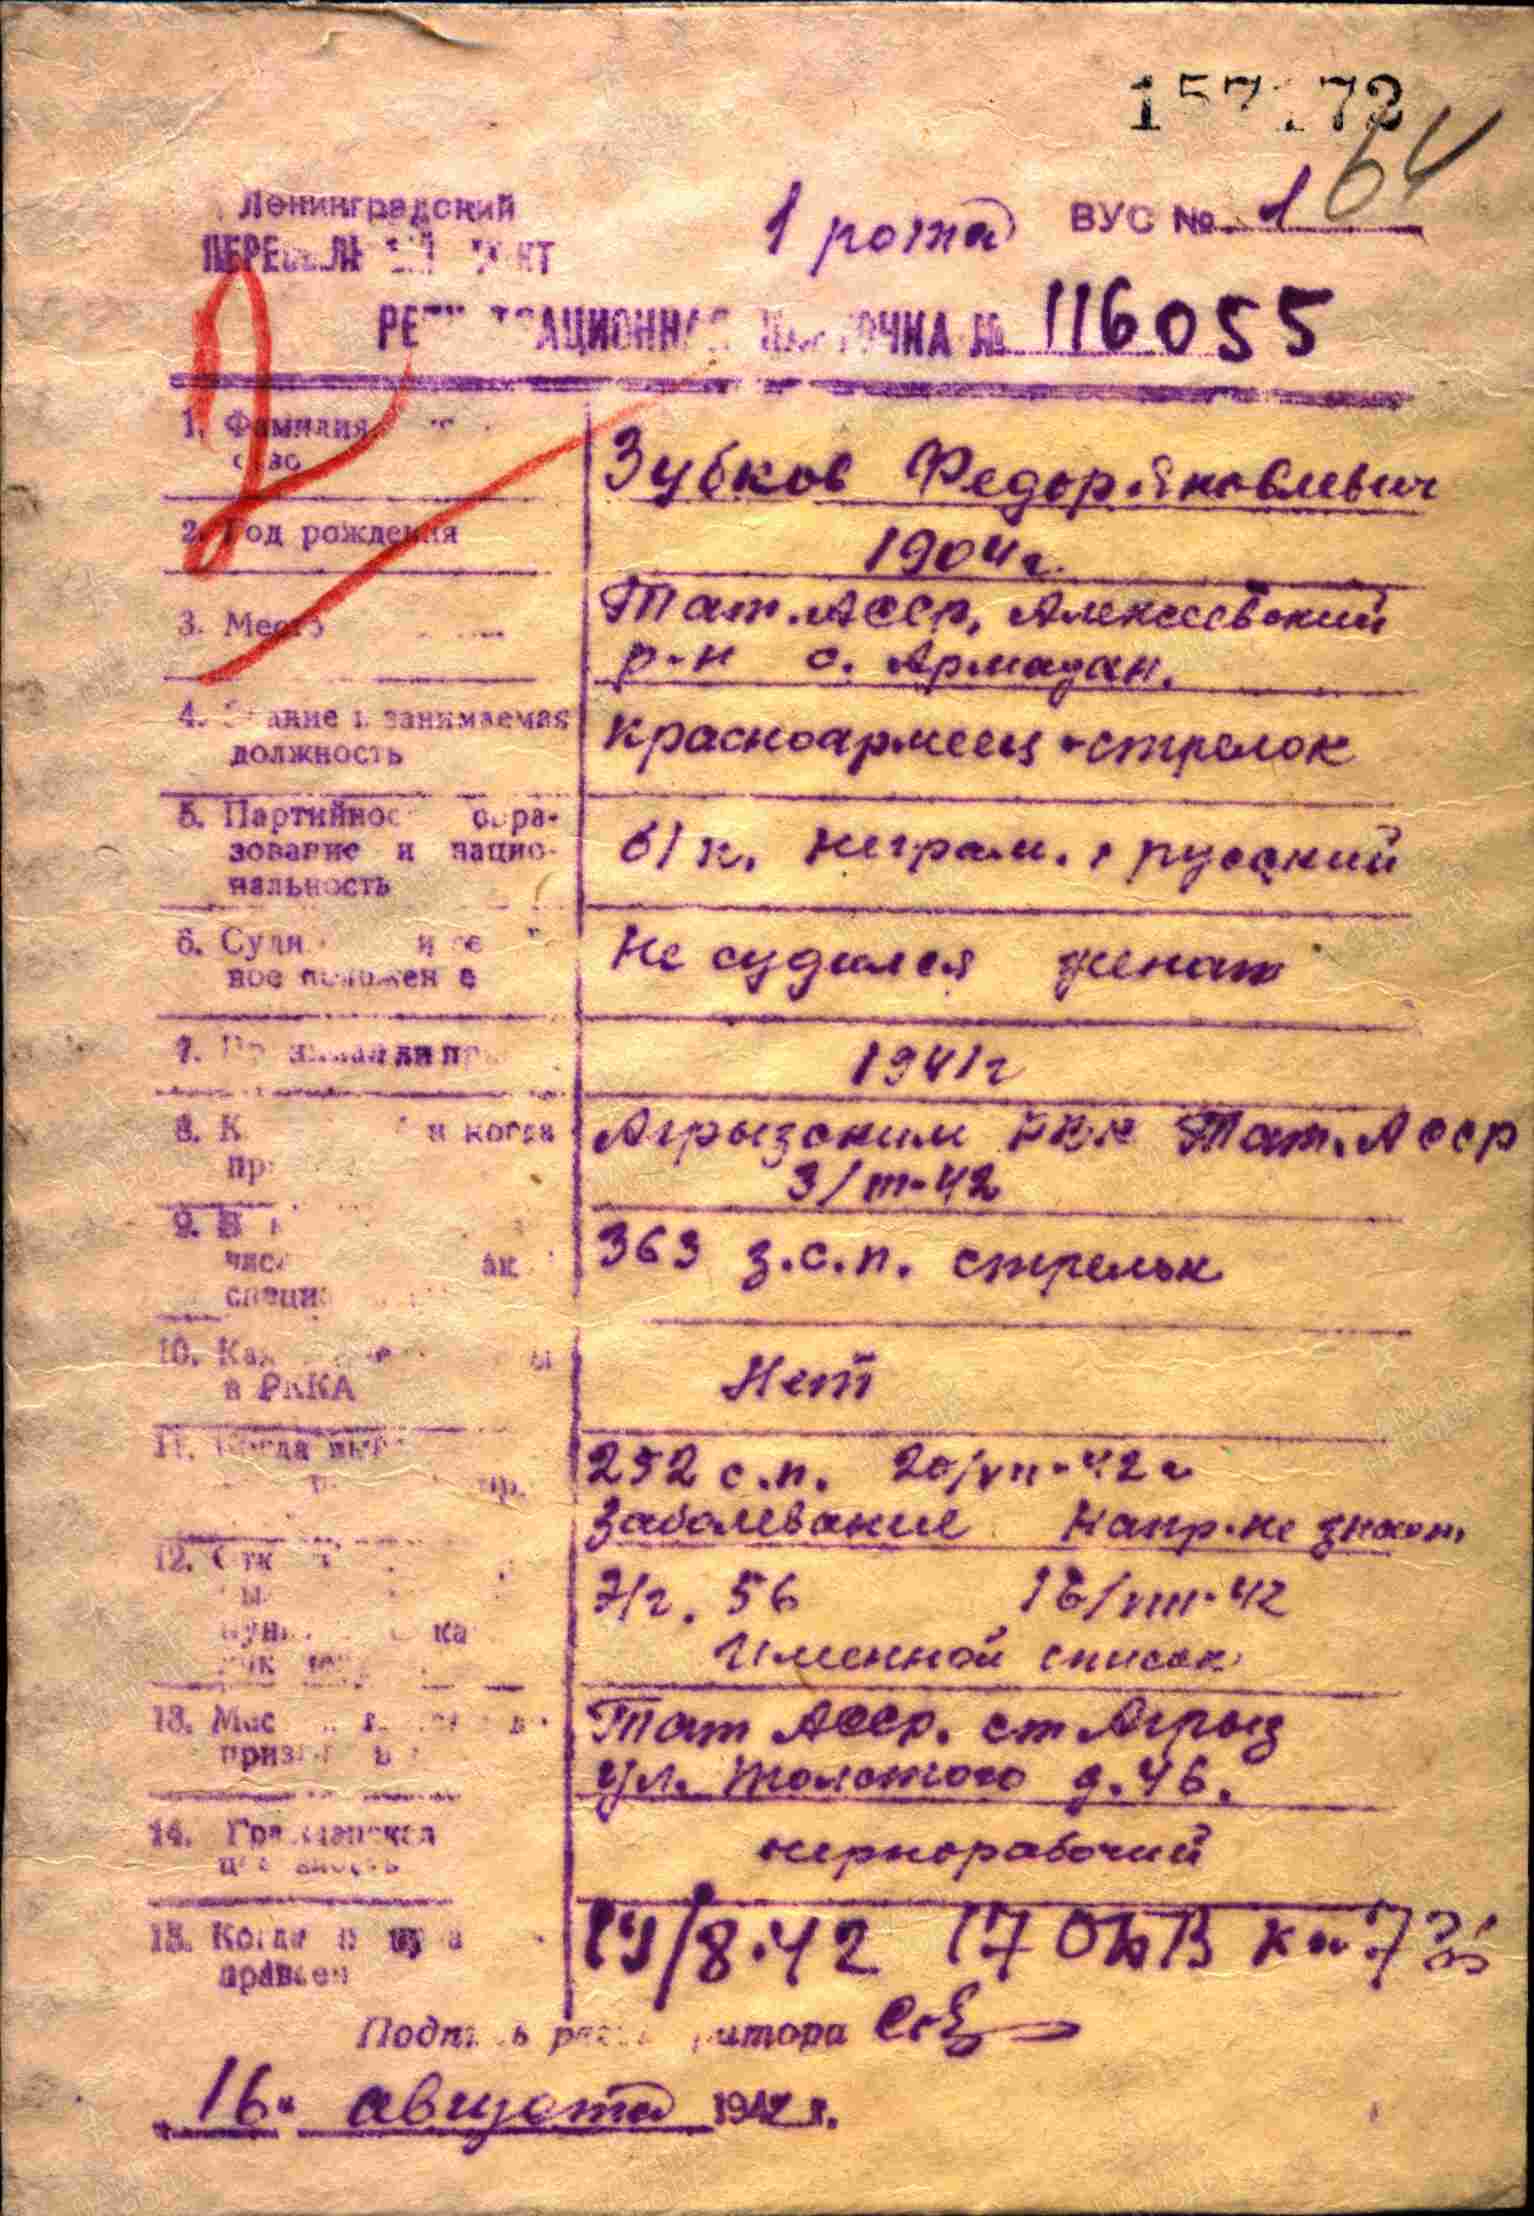 157172
64
Ленинградский
1 рота ВУС № 1
ПЕРЕСЫЛЬНЫЙ ПУНКТ
РЕГИСТРАЦИОННАЯ КАРТОЧКА № 116055
1. Фамилия
Зубков Федор Яковлевич
2. Год рождения
1904 г.
3. Место
Тат. АССР, Алексеевский
р-н с. Армадан.
4. Звание и занимаемая
должность
Красноармеец - стрелок
5. Партийность обра-
зование и нацио-
нальность
б/п. неграм. русский
6. Судимость и семей-
ное положение
Не судился женат
7.
1941 г
8. К и когда
Агрызским РВК Тат. АССР
3/III-42
9. В
363 з.с.п. стрельк
10. Как
в РККА
Нет
11. Когда
252 с.п. 20/VII-42 г
Заболевание Напр. не знает
12.
Э/г. 56 16/VIII-42
Именной список
13. Мес
призыва
Тат АССР. ст Агрыз
ул. Толстого д. 46.
14. Гражданская
чернорабочий
15. Когда и куда
правлен
19/8.42 17 ОБВ
Подпись регистратора
16 " августа 1942 г.